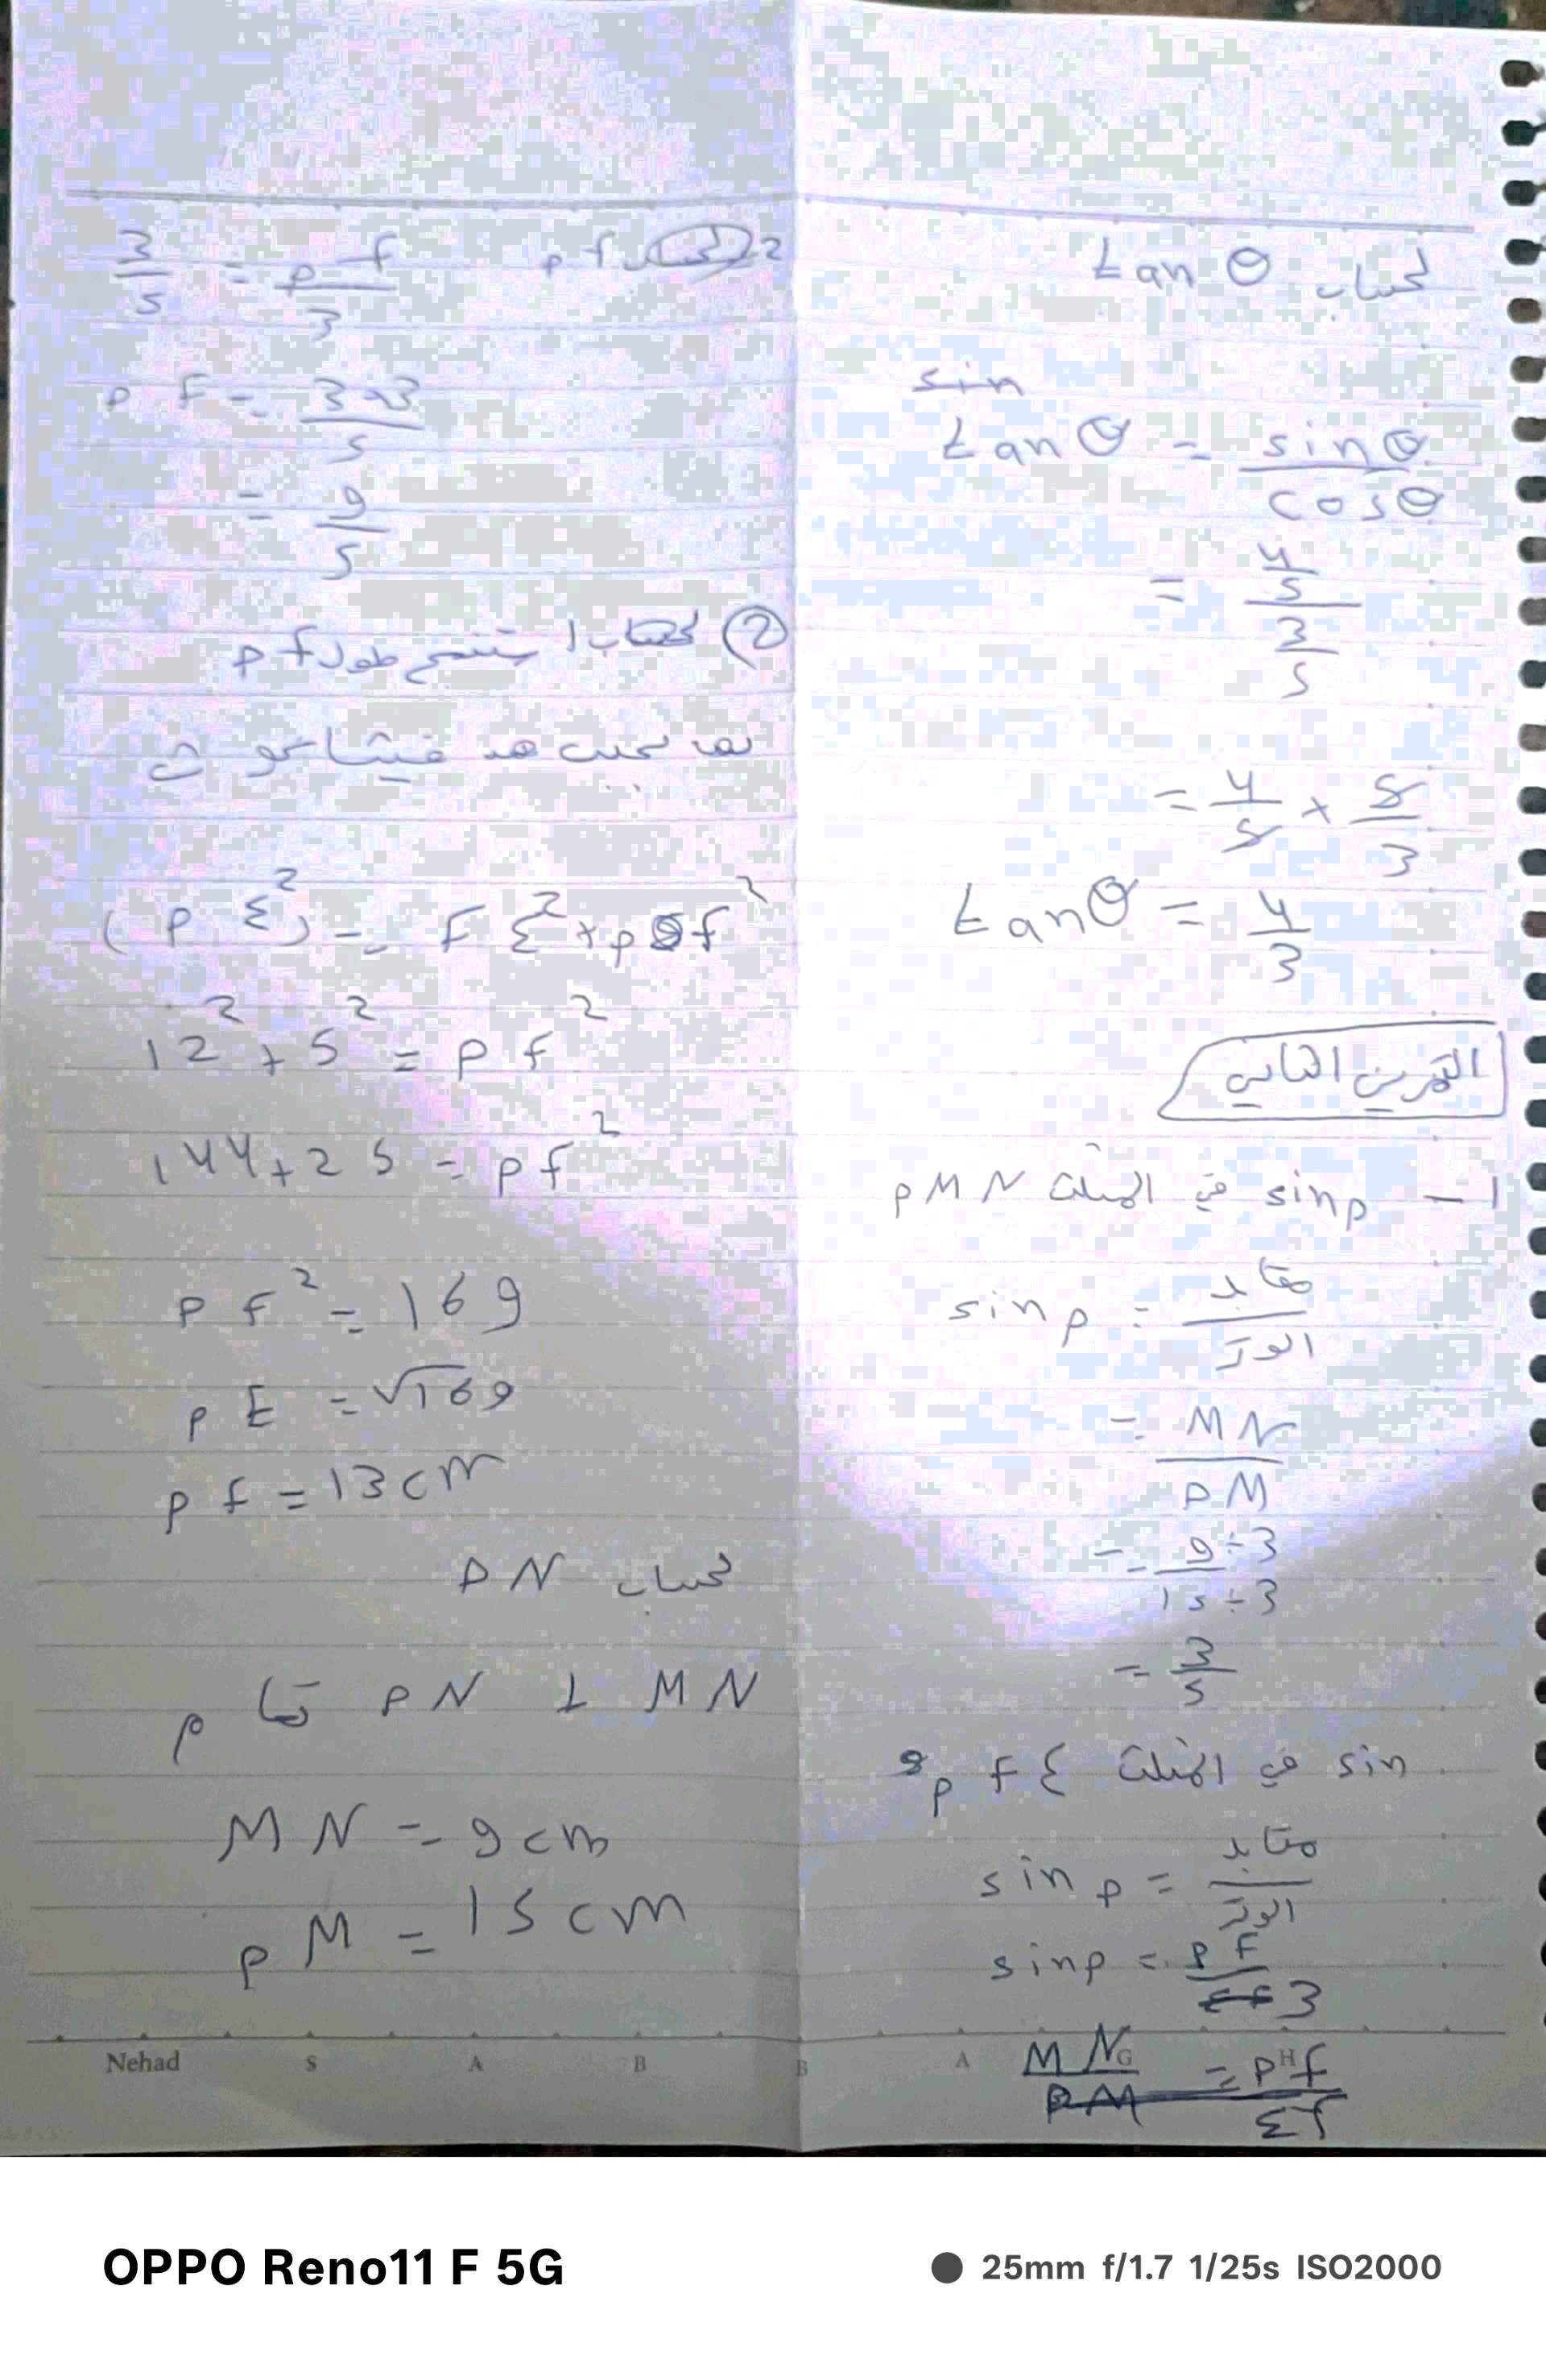 لحساب tan θ
sin
tan θ = sin θ / cos θ
= 4/5 / 3/5
= 4/5 × 5/3
tan θ = 4/3
التمرين الثاني
1 - sin p في المثلث PMN
sin p = مقابل / الوتر
= MN / PM
= 9÷3 / 15÷3
= 3/5
sin في المثلث p f ع
sin p = مقابل / الوتر
sin p = P F / 3
MN / PM = P f / Ef
2 pf
3/5 = p f / 3
p f = 3×3 / 5
= 9/5
② طول pf
حسب فيتاغورث
(p ع)² = F ع² + p f²
12² + 5² = p f²
144 + 25 = p f²
p f² = 169
p E = √169
p f = 13 cm
لحساب PN
PN ⊥ MN
MN = 9 cm
p M = 15 cm
Nehad S A B B A G H
OPPO Reno11 F 5G
25mm f/1.7 1/25s ISO2000